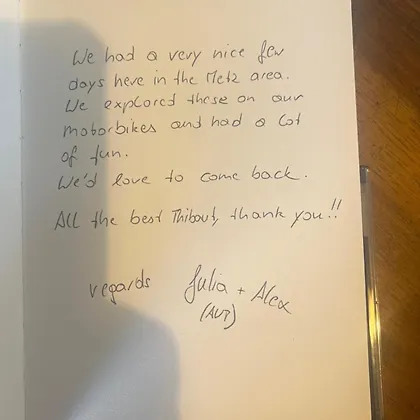 We had a very nice few
days here in the Metz area.
We explored those on our
motorbikes and had a lot
of fun.
We'd love to come back.
All the best Thibout, thank you!!
regards Julia + Alex
(AUT)